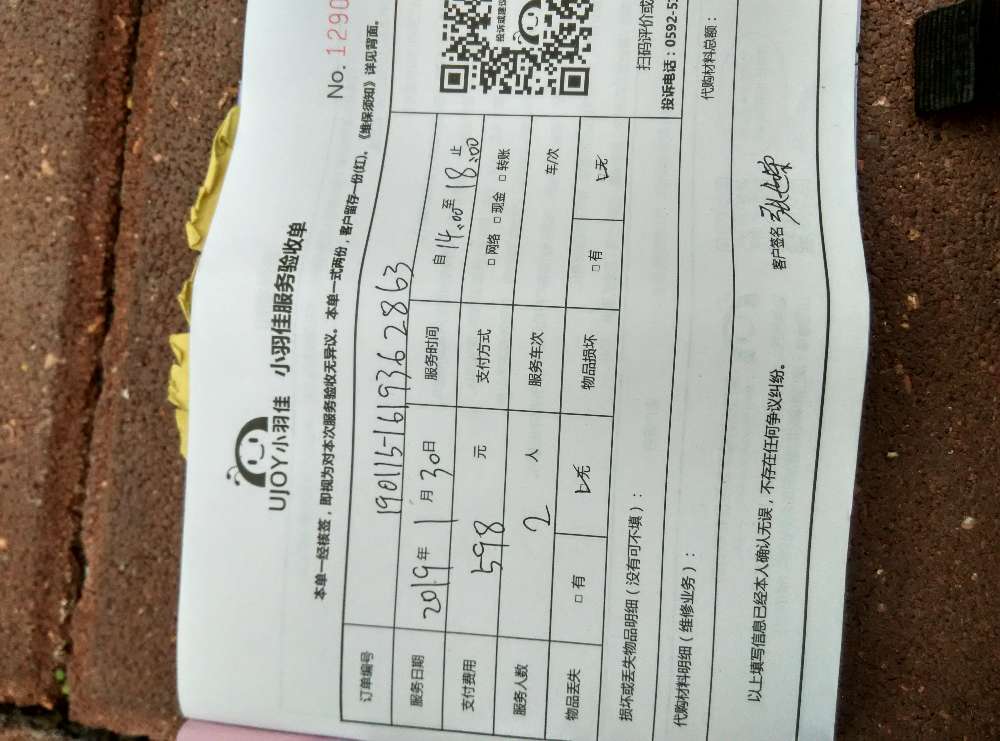 UJOY小羽佳 小羽佳服务验收单
No. 1290
本单一经核签，即视为对本次服务验收无异议。本单一式两份，客户留存一份(红)。《维保须知》详见背面。
订单编号 190115-1619362863
服务日期 2019年1月30日 服务时间 自14:00至18:00止
支付费用 598 元 支付方式 □网络 □现金 □转账
服务人数 2 人 服务车次 车/次
物品丢失 □有 □无 物品损坏 □有 □无
损坏或丢失物品明细（没有可不填）：
代购材料明细（维修业务）：
代购材料总额：
投诉或建议
扫码评价或
投诉电话：0592-5
以上填写信息已经本人确认无误，不存在任何争议纠纷。
客户签名